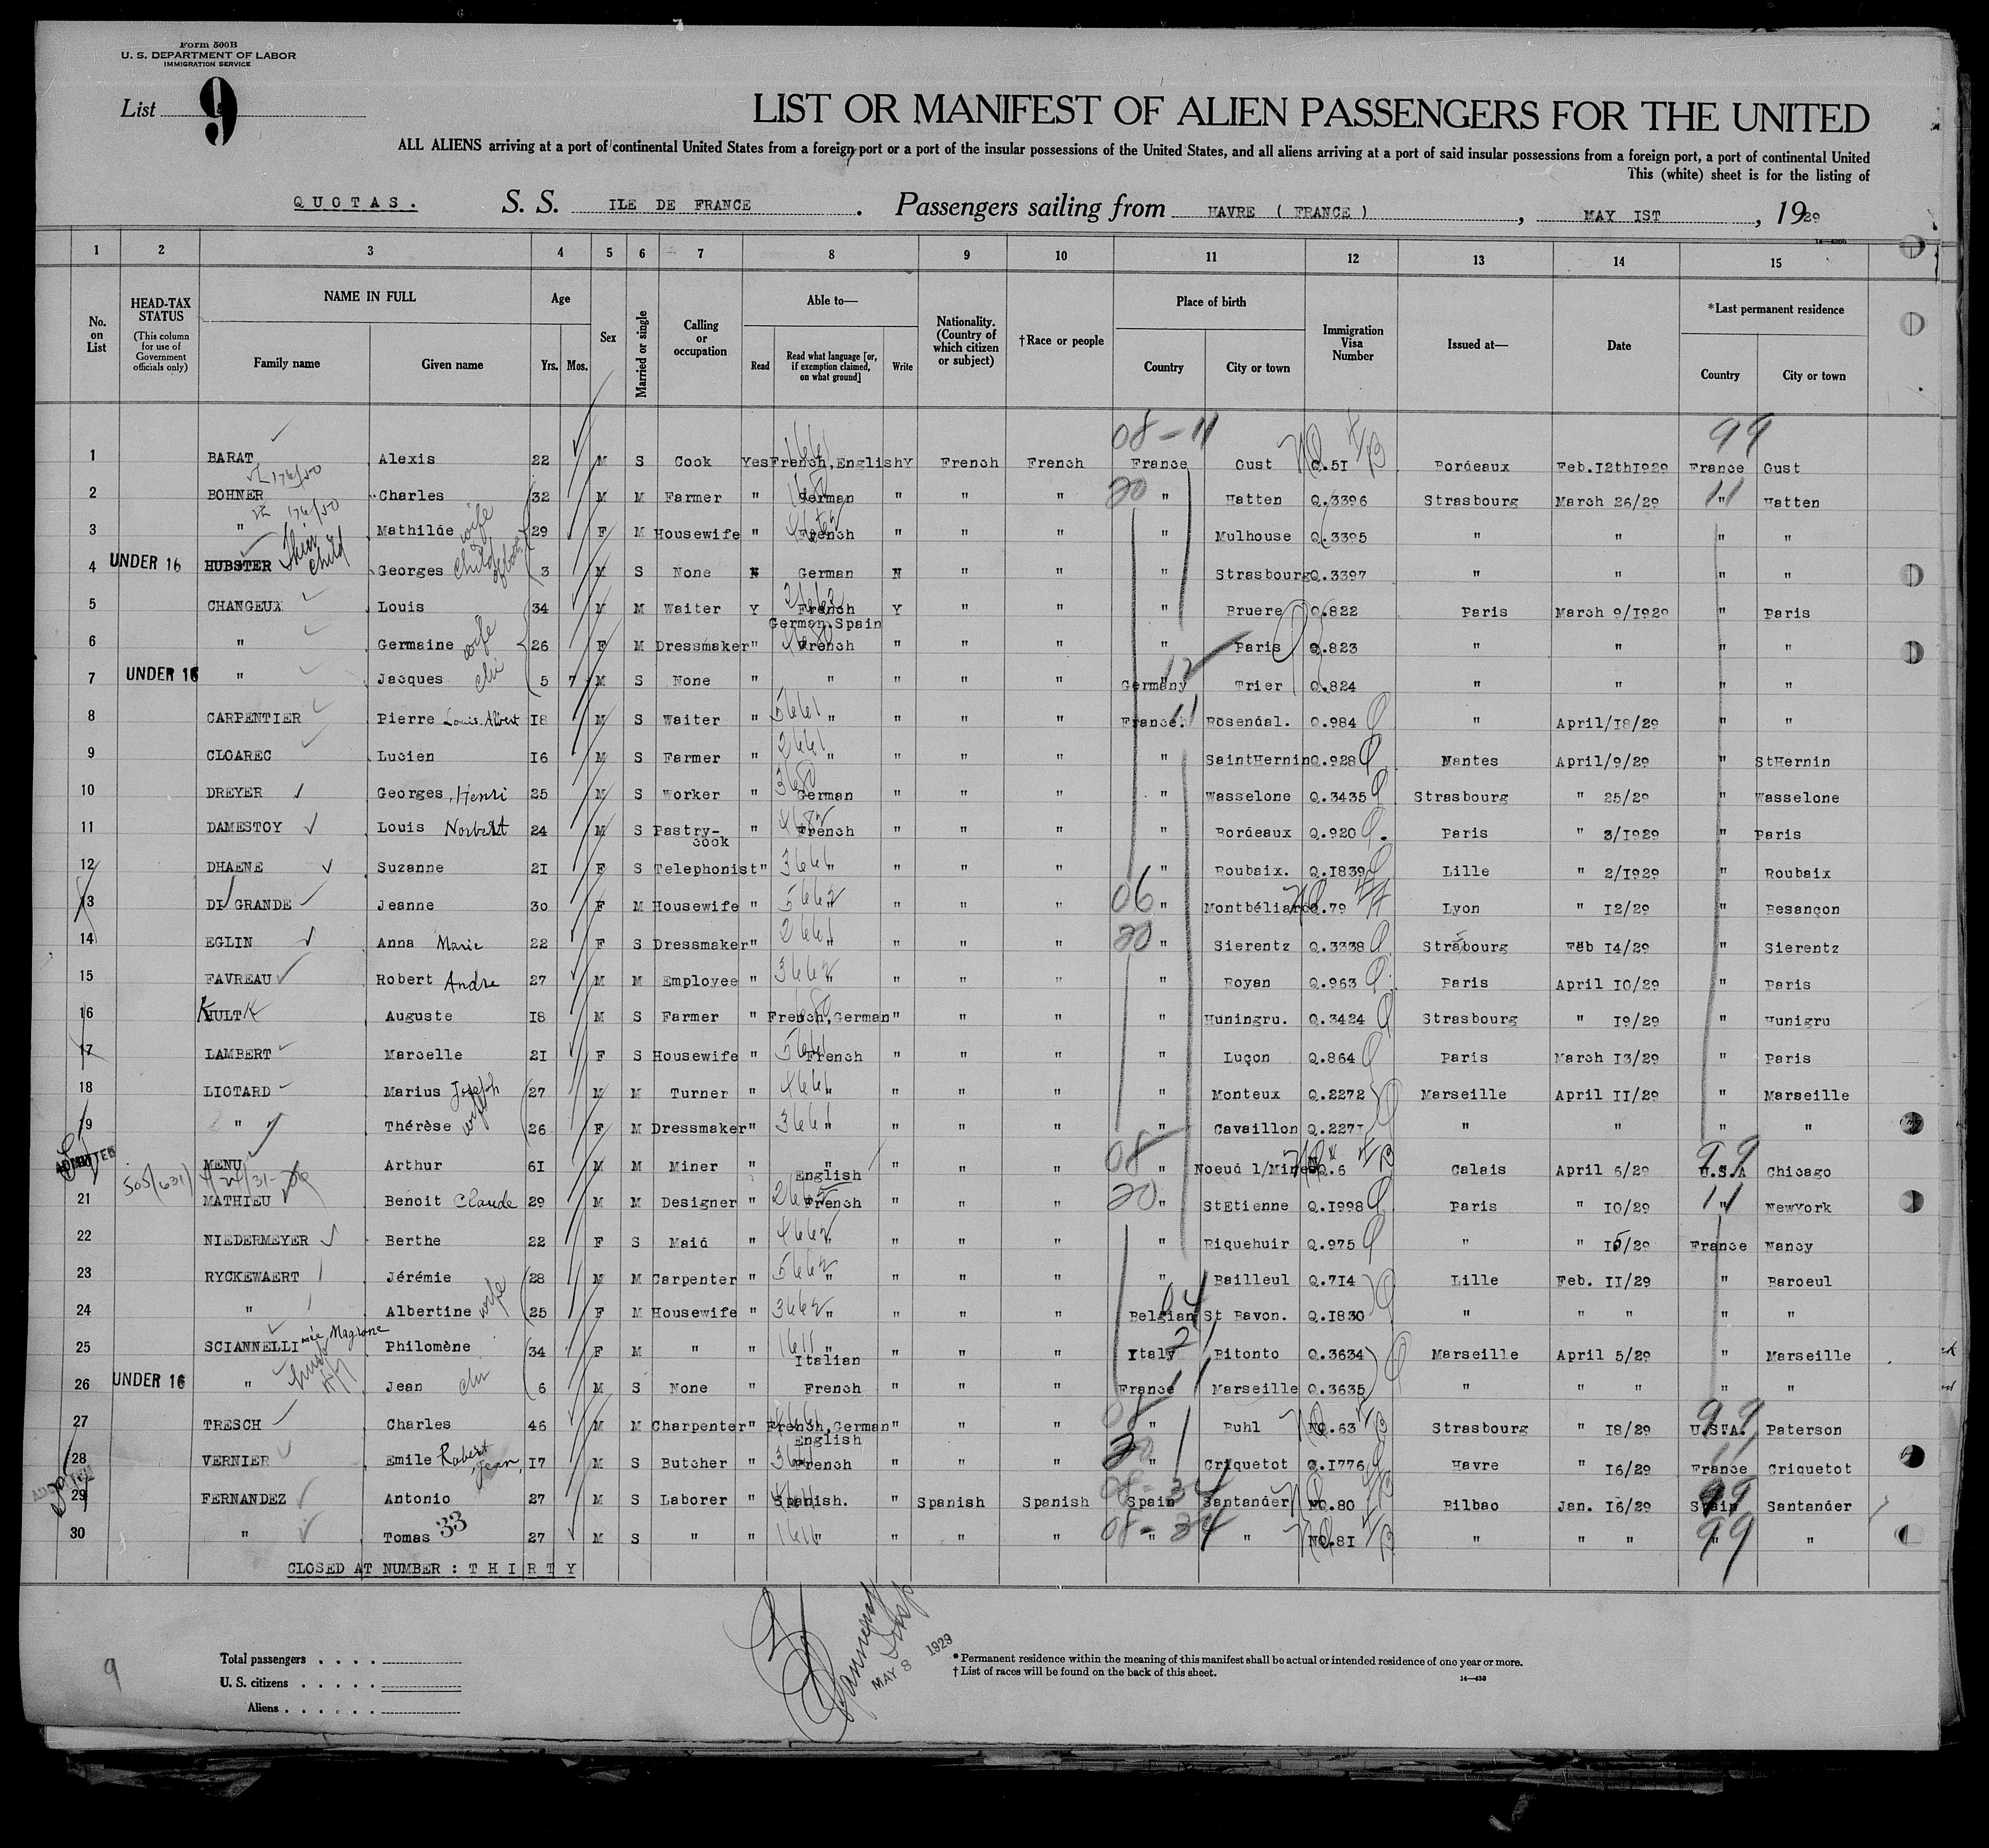 Form 500B
U. S. DEPARTMENT OF LABOR
IMMIGRATION SERVICE
List 9
LIST OR MANIFEST OF ALIEN PASSENGERS FOR THE UNITED
ALL ALIENS arriving at a port of continental United States from a foreign port or a port of the insular possessions of the United States, and all aliens arriving at a port of said insular possessions from a foreign port, a port of continental United
This (white) sheet is for the listing of
QUOTAS. S. S. ILE DE FRANCE. Passengers sailing from HAVRE ( FRANCE ), MAY IST, 1929
1 2 3 4 5 6 7 8 9 10 11 12 13 14 15
No. on List
HEAD-TAX STATUS
(This column for use of Government officials only)
NAME IN FULL
Family name Given name
Age
Yrs. Mos.
Sex
Married or single
Calling or occupation
Able to—
Read Read what language [or, if exemption claimed, on what ground] Write
Nationality. (Country of which citizen or subject)
†Race or people
Place of birth
Country City or town
Immigration Visa Number
Issued at—
Date
*Last permanent residence
Country City or town
08-11 99
1 BARAT Alexis 22 M S Cook Yes French,English Y French French France Oust Q.5I Bordeaux Feb.I2thI929 France Oust
2 BOHNER Charles 32 M M Farmer " German " " " 20 " Hatten Q.3396 Strasbourg March 26/29 " Hatten
3 " Mathilde wife 29 F M Housewife " French " " " " Mulhouse Q.3395 " " " "
4 UNDER 16 HUBSTER their child Georges child 3 M S None N German N " " " Strasbourg Q.3397 " " " "
5 CHANGEUX Louis 34 M M Waiter Y French Y " " " Bruere Q.822 Paris March 9/I929 " Paris
German.Spain
6 " Germaine wife 26 F M Dressmaker " French " " " " Paris Q.823 " " " "
7 UNDER 16 " Jacques chi 5 7 M S None " " " " " Germany Trier Q.824 " " " "
8 CARPENTIER Pierre Louis Albert I8 M S Waiter " " " " " France. Rosendal. Q.984 " April/I8/29 " "
9 CLOAREC Lucien I6 M S Farmer " " " " " " SaintHernin Q.928 Nantes April/9/29 " StHernin
10 DREYER Georges, Henri 25 M S Worker " German " " " " Wasselone Q.3435 Strasbourg " 25/29 " Wasselone
11 DAMESTOY Louis Norbert 24 M S Pastry-cook " French " " " " Bordeaux Q.920 Paris " 3/I929 " Paris
12 DHAENE Suzanne 2I F S Telephonist " " " " " " Roubaix. Q.I839 Lille " 2/I929 " Roubaix
13 DI GRANDE Jeanne 30 F M Housewife " " " " " 06 " Montbéliard Q.79 Lyon " I2/29 " Besançon
14 EGLIN Anna Marie 22 F S Dressmaker " " " " " 20 " Sierentz Q.3338 Strasbourg Feb I4/29 " Sierentz
15 FAVREAU Robert Andre 27 M M Employee " " " " " " Royan Q.963 Paris April I0/29 " Paris
16 KULTK Auguste I8 M S Farmer " French,German " " " " Huningru. Q.3424 Strasbourg " I9/29 " Hunigru
17 LAMBERT Marcelle 2I F S Housewife " French " " " " Luçon Q.864 Paris March I3/29 " Paris
18 LIOTARD Marius Joseph 27 M M Turner " " " " " " Monteux Q.2272 Marseille April II/29 " Marseille
19 " Thérèse wife 26 F M Dressmaker " " " " " " Cavaillon Q.227I " " " "
ADMITTED MENU Arthur 6I M M Miner " " " " " 08 " Noeud l/Mines NQ.6 Calais April 6/29 U.S.A Chicago
English
21 MATHIEU Benoit Claude 29 M M Designer " French " " " 20 " StEtienne Q.I998 Paris " I0/29 " NewYork
22 NIEDERMEYER Berthe 22 F S Maid " " " " " " Riquehuir Q.975 " " I5/29 France Nancy
23 RYCKEWAERT Jérémie 28 M M Carpenter " " " " " " Bailleul Q.7I4 Lille Feb. II/29 " Baroeul
24 " Albertine wife 25 F M Housewife " " " " " Belgian St Bavon. Q.I830 " " " " "
25 SCIANNELLI née Magrone Philomène 34 F M " " " " " " Italy Bitonto Q.3634 Marseille April 5/29 " Marseille
Italian
26 UNDER 16 " Jean chi 6 M S None " French " " " France Marseille Q.3635 " " " " "
27 TRESCH Charles 46 M M Charpenter " French,German " " " " Buhl NQ.63 Strasbourg " I8/29 U.S.A. Paterson
English
28 VERNIER Emile Robert Jean, I7 M S Butcher " French " " " " Criquetot Q.I776 Havre " I6/29 France Criquetot
29 FERNANDEZ Antonio 27 M S Laborer " Spanish. " Spanish Spanish Spain Santander NQ.80 Bilbao Jan. I6/29 Spain Santander
30 " Tomas 33 27 M S " " " " " " " " NQ.8I " " " " "
CLOSED AT NUMBER : T H I R T Y
Total passengers
U. S. citizens
Aliens
9
MAY 8 1929
* Permanent residence within the meaning of this manifest shall be actual or intended residence of one year or more.
† List of races will be found on the back of this sheet.
14—430